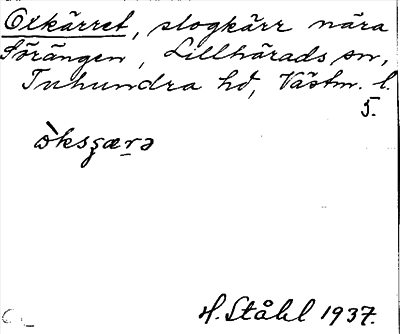 Oxkärret, slogkärr nära
Sörängen, Lillhärads sn,
Tuhundra hd, Västm. l.
5.
òksʂærə
H. Ståhl 1937.